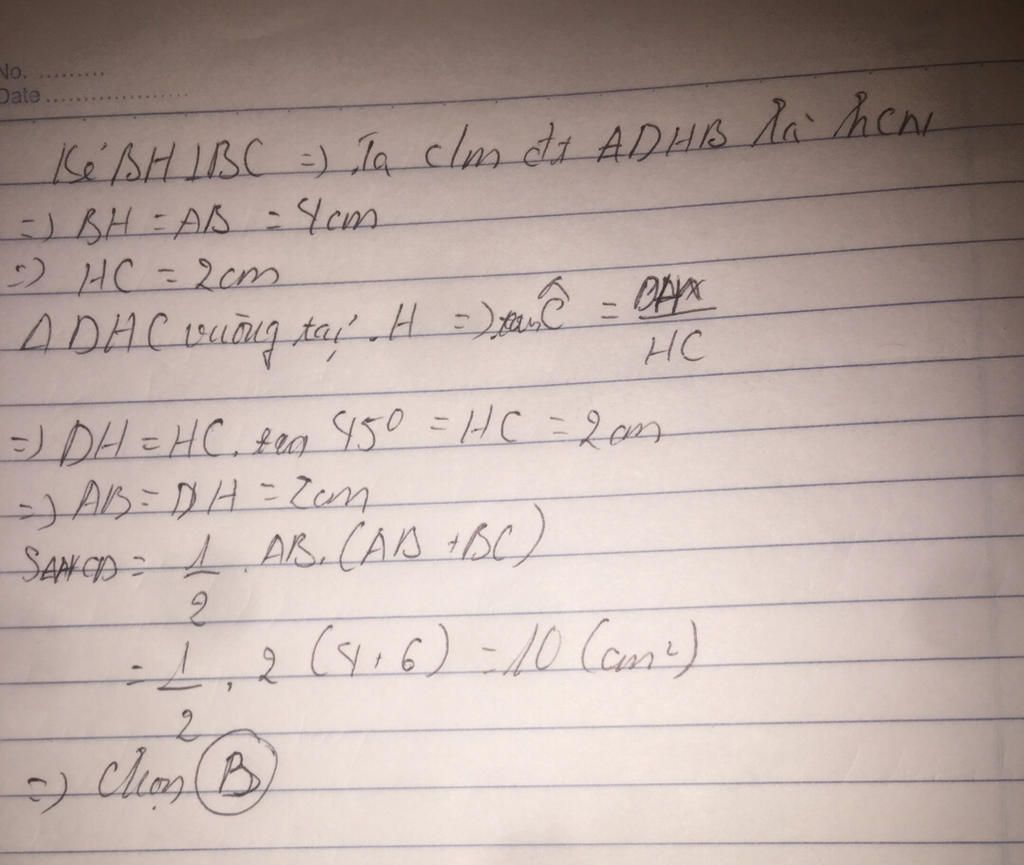 No. .........
Date ...................
Kẻ BH⊥BC => Ta c/m đt ADHB là hcn
=> BH = AB = 4cm
=> HC = 2cm
ΔDHC vuông tại H => tan Ĉ = DH/HC
=> DH = HC. tan 45° = HC = 2cm
=> AB = DH = 2cm
= 1/2 . AB. (AB + BC)
= 1/2 . 2 (4+6) = 10 (cm²)
=> Chọn B